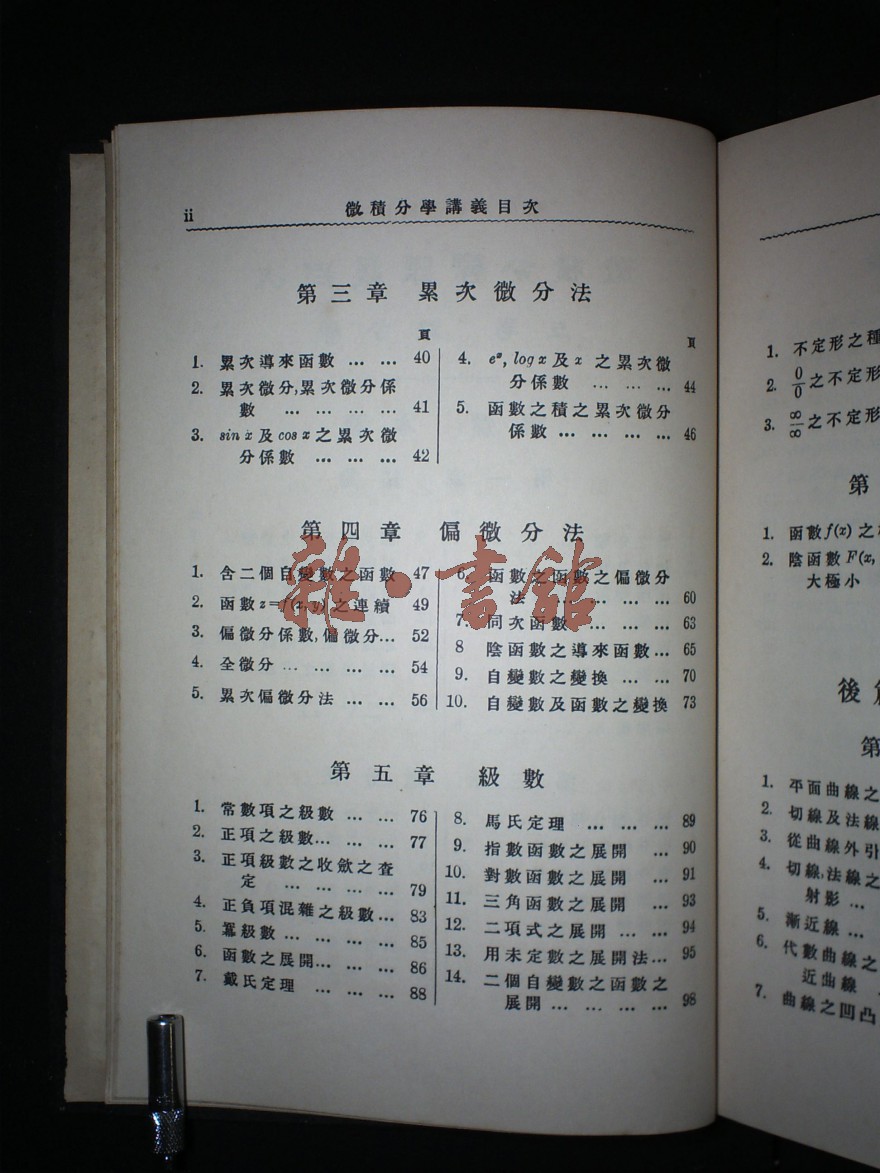 ii
微積分學講義目次
第三章 累次微分法
頁
1. 累次導來函數 … … 40
2. 累次微分,累次微分係
數 … … … … 41
3. sin x 及 cos x 之累次微
分係數 … … … 42
頁
4. eˣ, log x 及 x 之累次微
分係數 … … … 44
5. 函數之積之累次微分
係數 … … … … 46
第四章 偏微分法
1. 含二個自變數之函數 47
2. 函數 z=f(x, y) 之連續 49
3. 偏微分係數,偏微分… 52
4. 全微分 … … … … 54
5. 累次偏微分法 … … 56
6. 函數之函數之偏微分
法 … … … … … 60
7. 同次函數 … … … 63
8 陰函數之導來函數… 65
9. 自變數之變換 … … 70
10. 自變數及函數之變換 73
雜·書館
第五章 級數
1. 常數項之級數 … … 76
2. 正項之級數… … … 77
3. 正項級數之收斂之查
定 … … … … 79
4. 正負項混雜之級數… 83
5. 羃級數 … … … … 85
6. 函數之展開… … … 86
7. 戴氏定理 … … … 88
8. 馬氏定理 … … … 89
9. 指數函數之展開 … 90
10. 對數函數之展開 … 91
11. 三角函數之展開 … 93
12. 二項式之展開 … … 94
13. 用未定數之展開法… 95
14. 二個自變數之函數之
展開 … … … … 98
1. 不定形之種
2. 0/0 之不定形
3. ∞/∞ 之不定形
第
1. 函數 f(x) 之
2. 陰函數 F(x,
大極小
後
第
1. 平面曲線之
2. 切線及法線
3. 從曲線外引
4. 切線,法線之
射影 …
5. 漸近線 …
6. 代數曲線之
近曲線
7. 曲線之凹凸